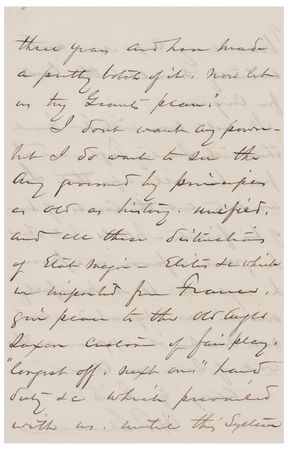 three years and have made
a pretty botch of it. Now let
us try Grant's plan."
I dont want any power
but I do want to see the
Army governed by principles
as old as history. unified,
and all these distinctions
of Etat Major - Elites &c which
are imported from France,
give place to the old Anglo
Saxon custom of fair play.
"longest off, next on" hard
duty &c which prevailed
with us. until this System